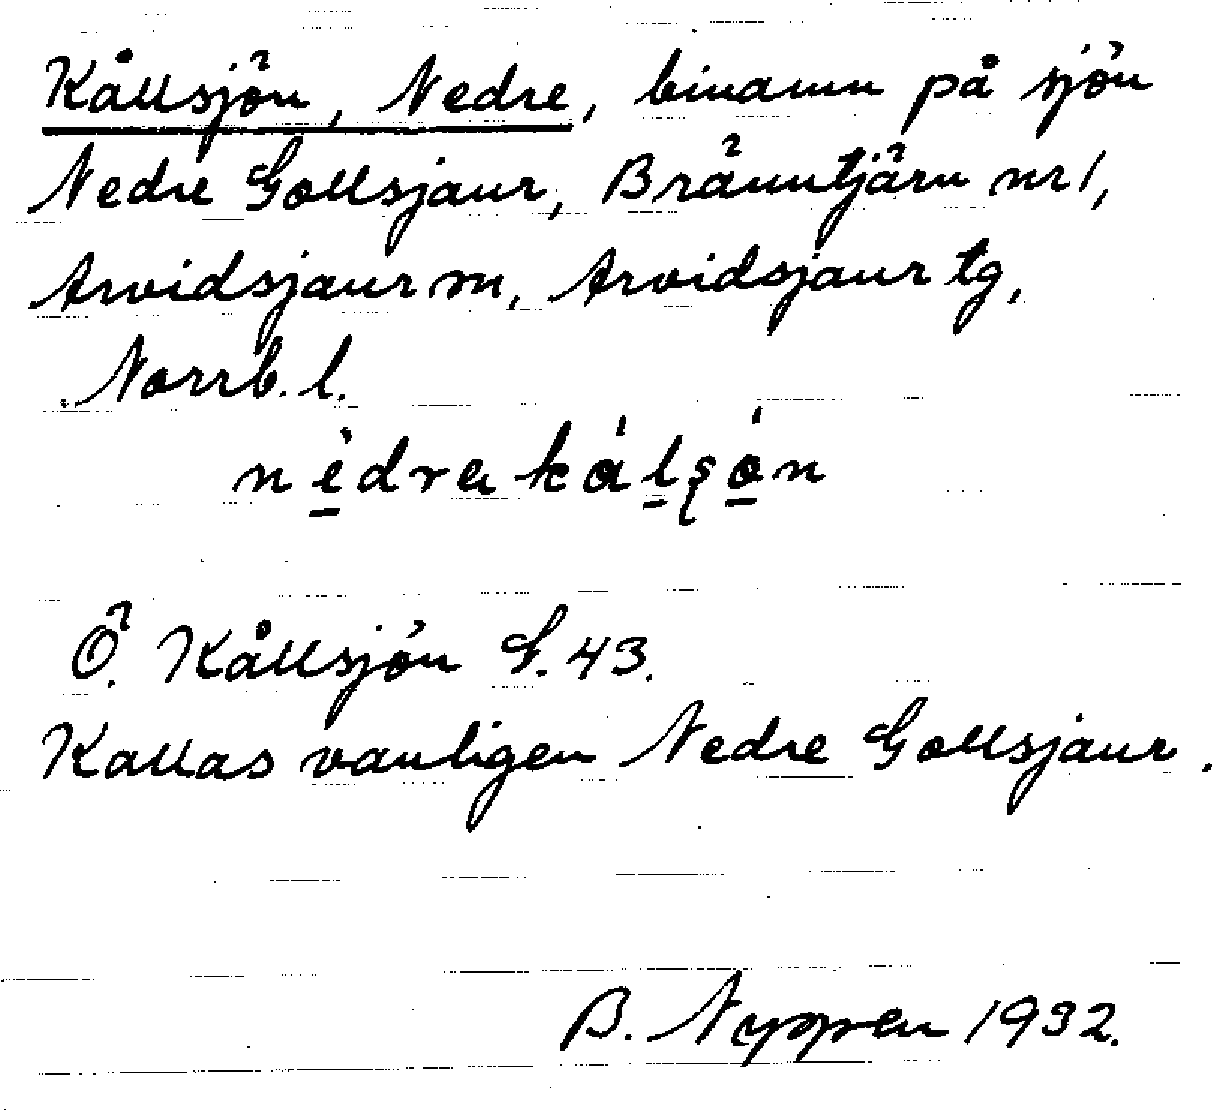 Kållsjön, Nedre, binamn på sjön
Nedre Gollsjaur, Bränntjärn nr 1,
Arvidsjaur sn, Arvidsjaur tg,
Norrb. l.
Ö. Kållsjön S. 43.
Kallas vanligen Nedre Gollsjaur.
B. Nyppen 1932.